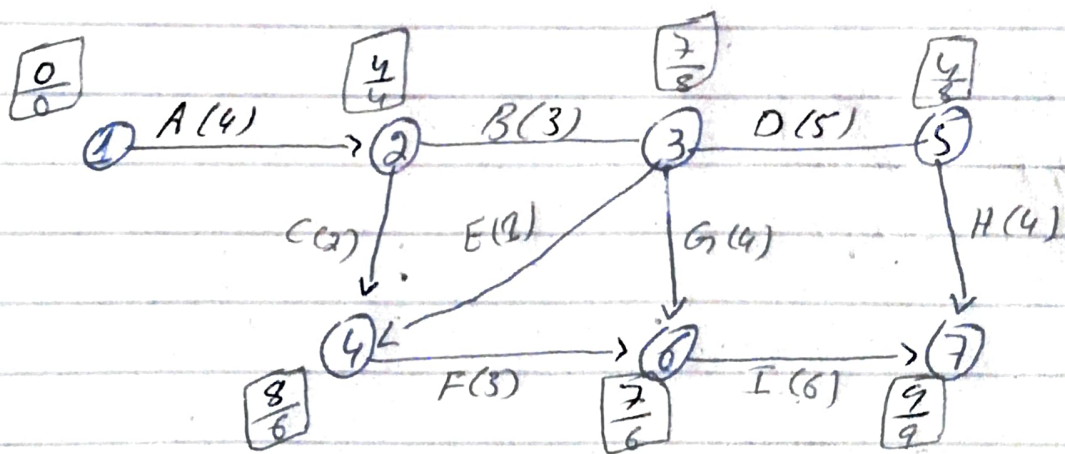 0/0 4/4 7/8 4/8
1 A(4) 2 B(3) 3 D(5) 5
C(2) E(1) G(4) H(4)
4 F(3) 6 I(6) 7
8/6 7/6 9/9